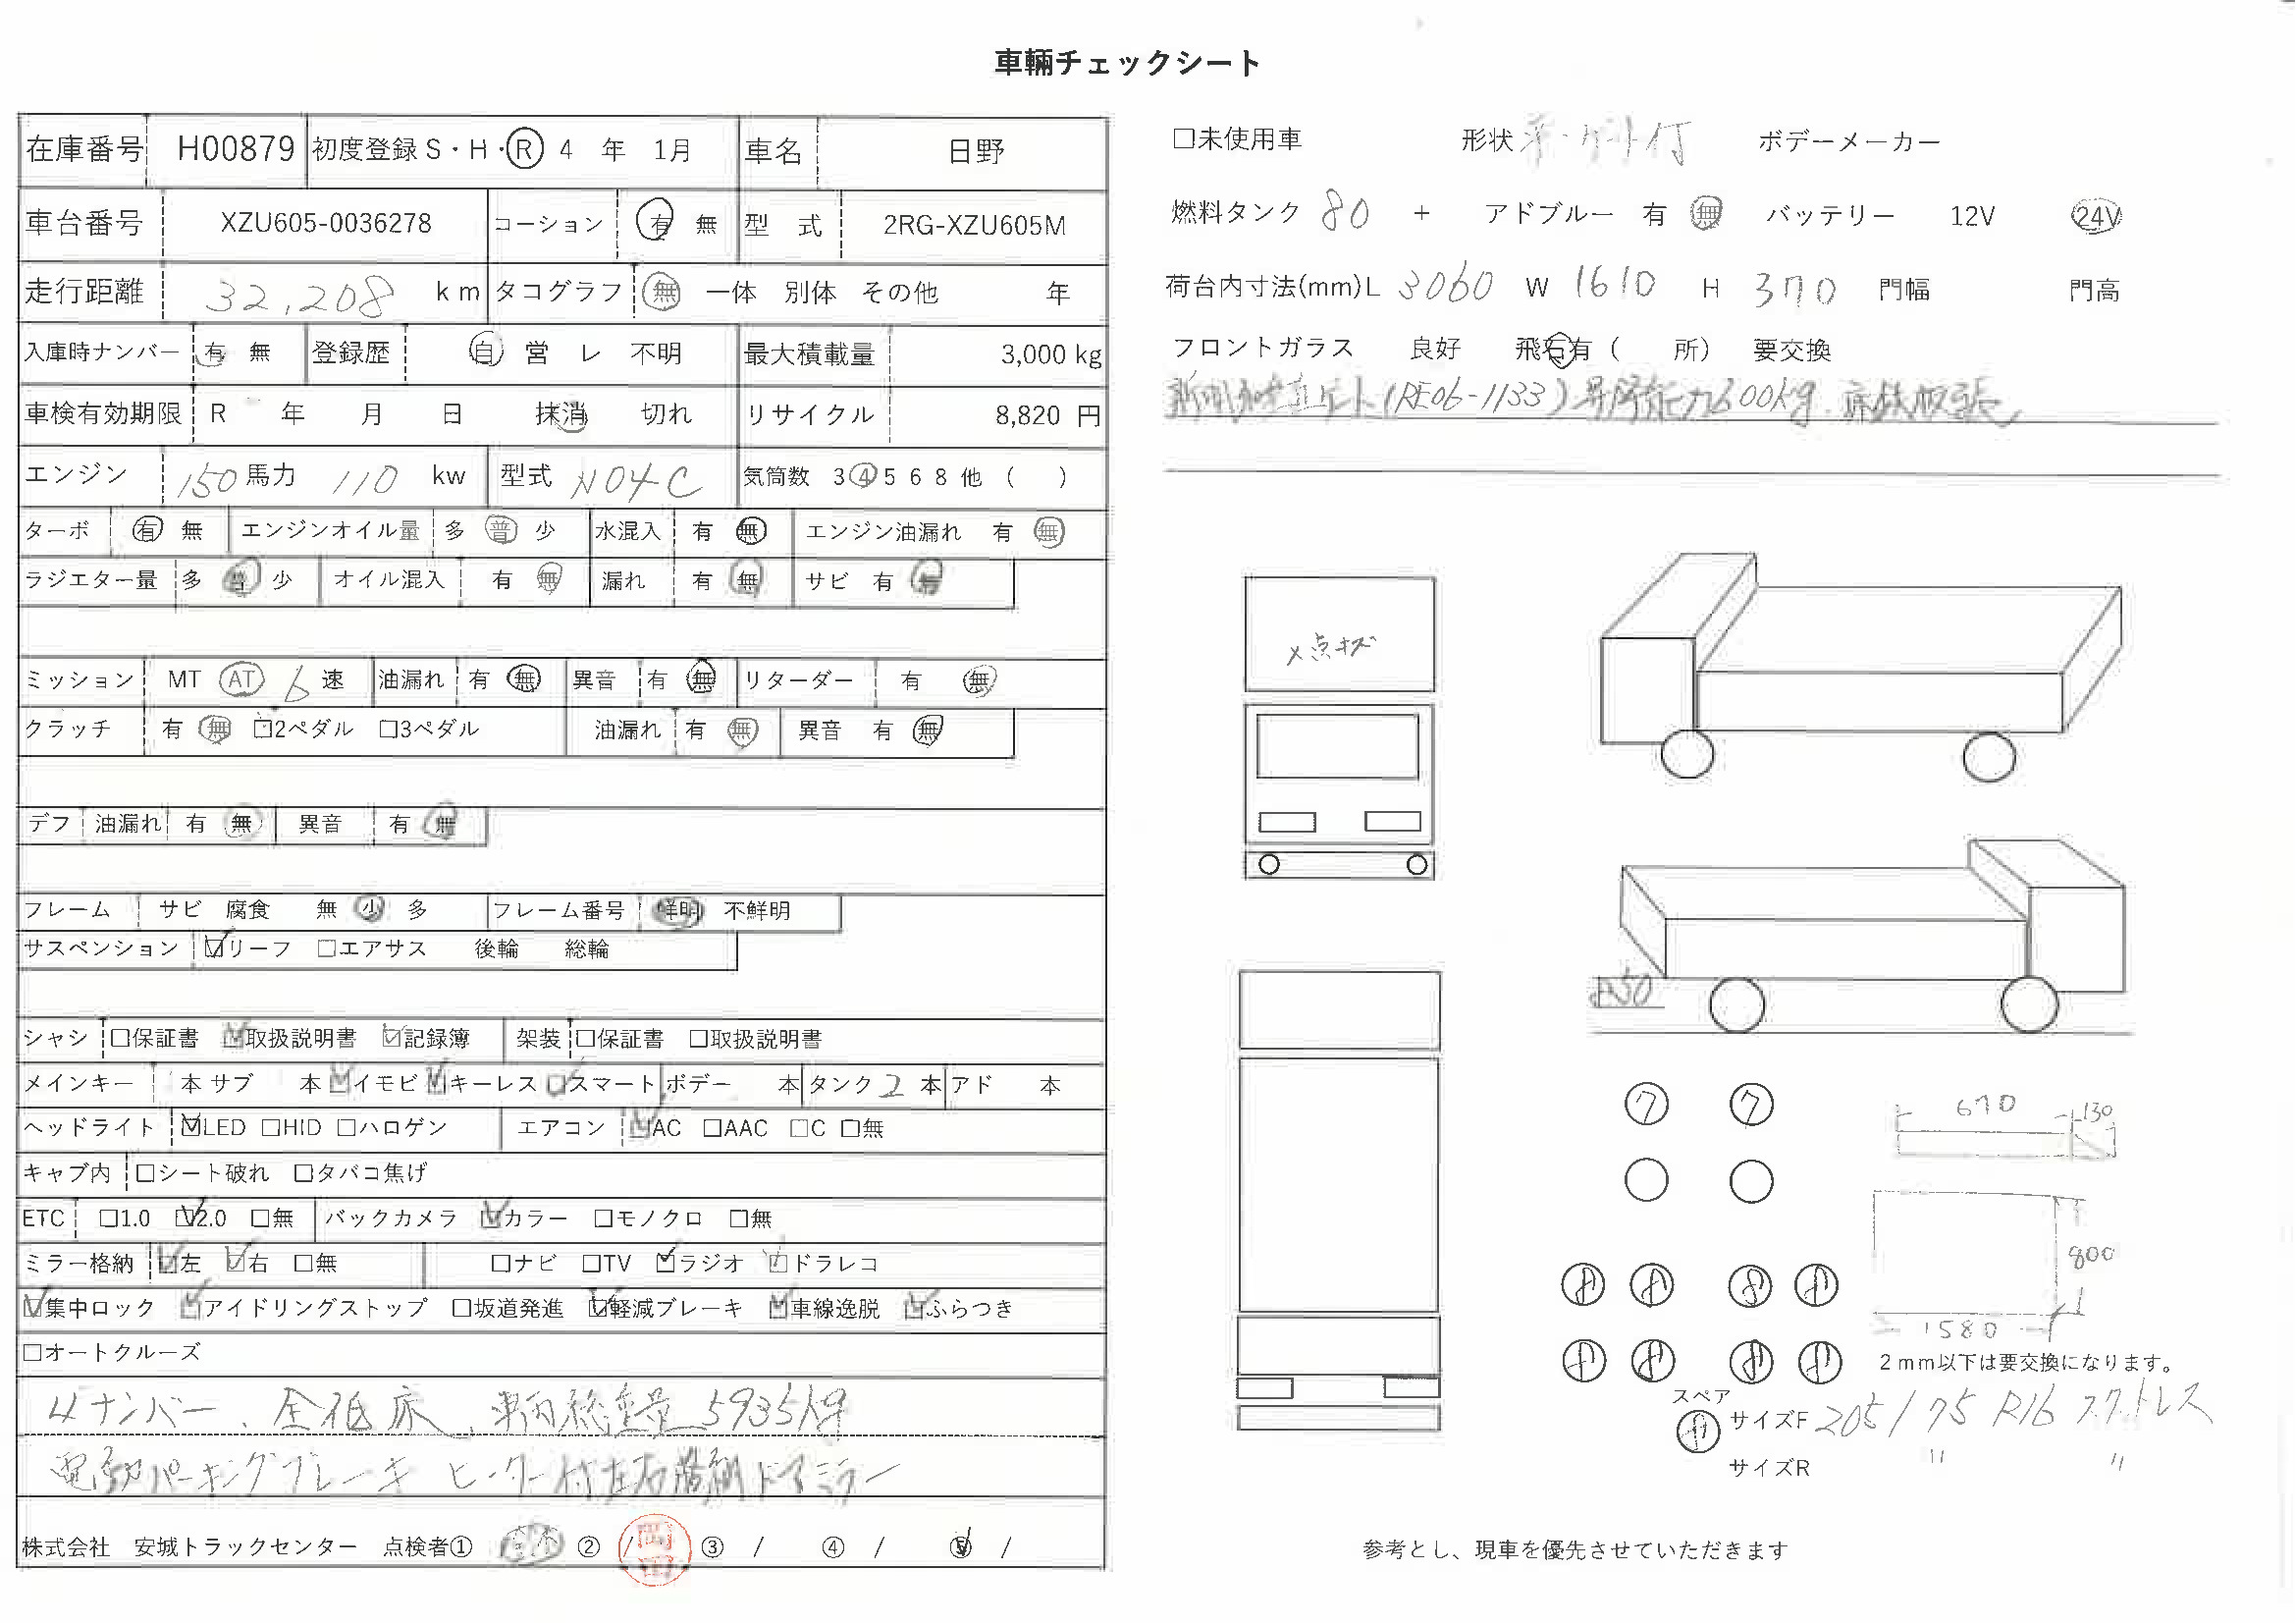 車輛チェックシート
在庫番号 H00879 初度登録 S・H・R 4 年 1月 車名 日野
車台番号 XZU605-0036278 コーション 有 無 型 式 2RG-XZU605M
走行距離 32,208 km タコグラフ 無 一体 別体 その他 年
入庫時ナンバー 有 無 登録歴 自 営 レ 不明 最大積載量 3,000 kg
車検有効期限 R 年 月 日 抹消 切れ リサイクル 8,820 円
エンジン 150 馬力 110 kw 型式 N04C 気筒数 3 4 5 6 8 他 ( )
ターボ 有 無 エンジンオイル量 多 普 少 水混入 有 無 エンジン油漏れ 有 無
ラジエター量 多 普 少 オイル混入 有 無 漏れ 有 無 サビ 有 無
ミッション MT AT 6 速 油漏れ 有 無 異音 有 無 リターダー 有 無
クラッチ 有 無 □2ペダル □3ペダル 油漏れ 有 無 異音 有 無
デフ 油漏れ 有 無 異音 有 無
フレーム サビ 腐食 無 少 多 フレーム番号 鮮明 不鮮明
サスペンション ☑リーフ □エアサス 後輪 総輪
シャシ □保証書 ☑取扱説明書 ☑記録簿 架装 □保証書 □取扱説明書
メインキー 本 サブ 本 ☑イモビ ☑キーレス ☑スマート ボデー 本 タンク 2 本 アド 本
ヘッドライト ☑LED □HID □ハロゲン エアコン ☑AC □AAC □C □無
キャブ内 □シート破れ □タバコ焦げ
ETC □1.0 ☑2.0 □無 バックカメラ ☑カラー □モノクロ □無
ミラー格納 ☑左 ☑右 □無 □ナビ □TV ☑ラジオ ☑ドラレコ
☑集中ロック ☑アイドリングストップ □坂道発進 ☑軽減ブレーキ ☑車線逸脱 ☑ふらつき
□オートクルーズ
4ナンバー、全低床、車両総重量 5935kg
電動パーキングブレーキ ヒーター付左右格納ドアミラー
株式会社 安城トラックセンター 点検者① ② / 岡田 ③ / ④ / ⑤ /
□未使用車 形状 平・ゲート付 ボデーメーカー
燃料タンク 80 + アドブルー 有 無 バッテリー 12V 24V
荷台内寸法(mm)L 3060 W 1610 H 370 門幅 門高
フロントガラス 良好 飛石有 ( 所) 要交換
(RE06-1133) 昇降能力600kg 床鉄板張
点キズ
7 7
670 130
800
1580
8 8 8 8
8 8 8 8
2mm以下は要交換になります。
スペア
8 サイズF 205/75 R16 スタッドレス
サイズR 〃 〃
参考とし、現車を優先させていただきます